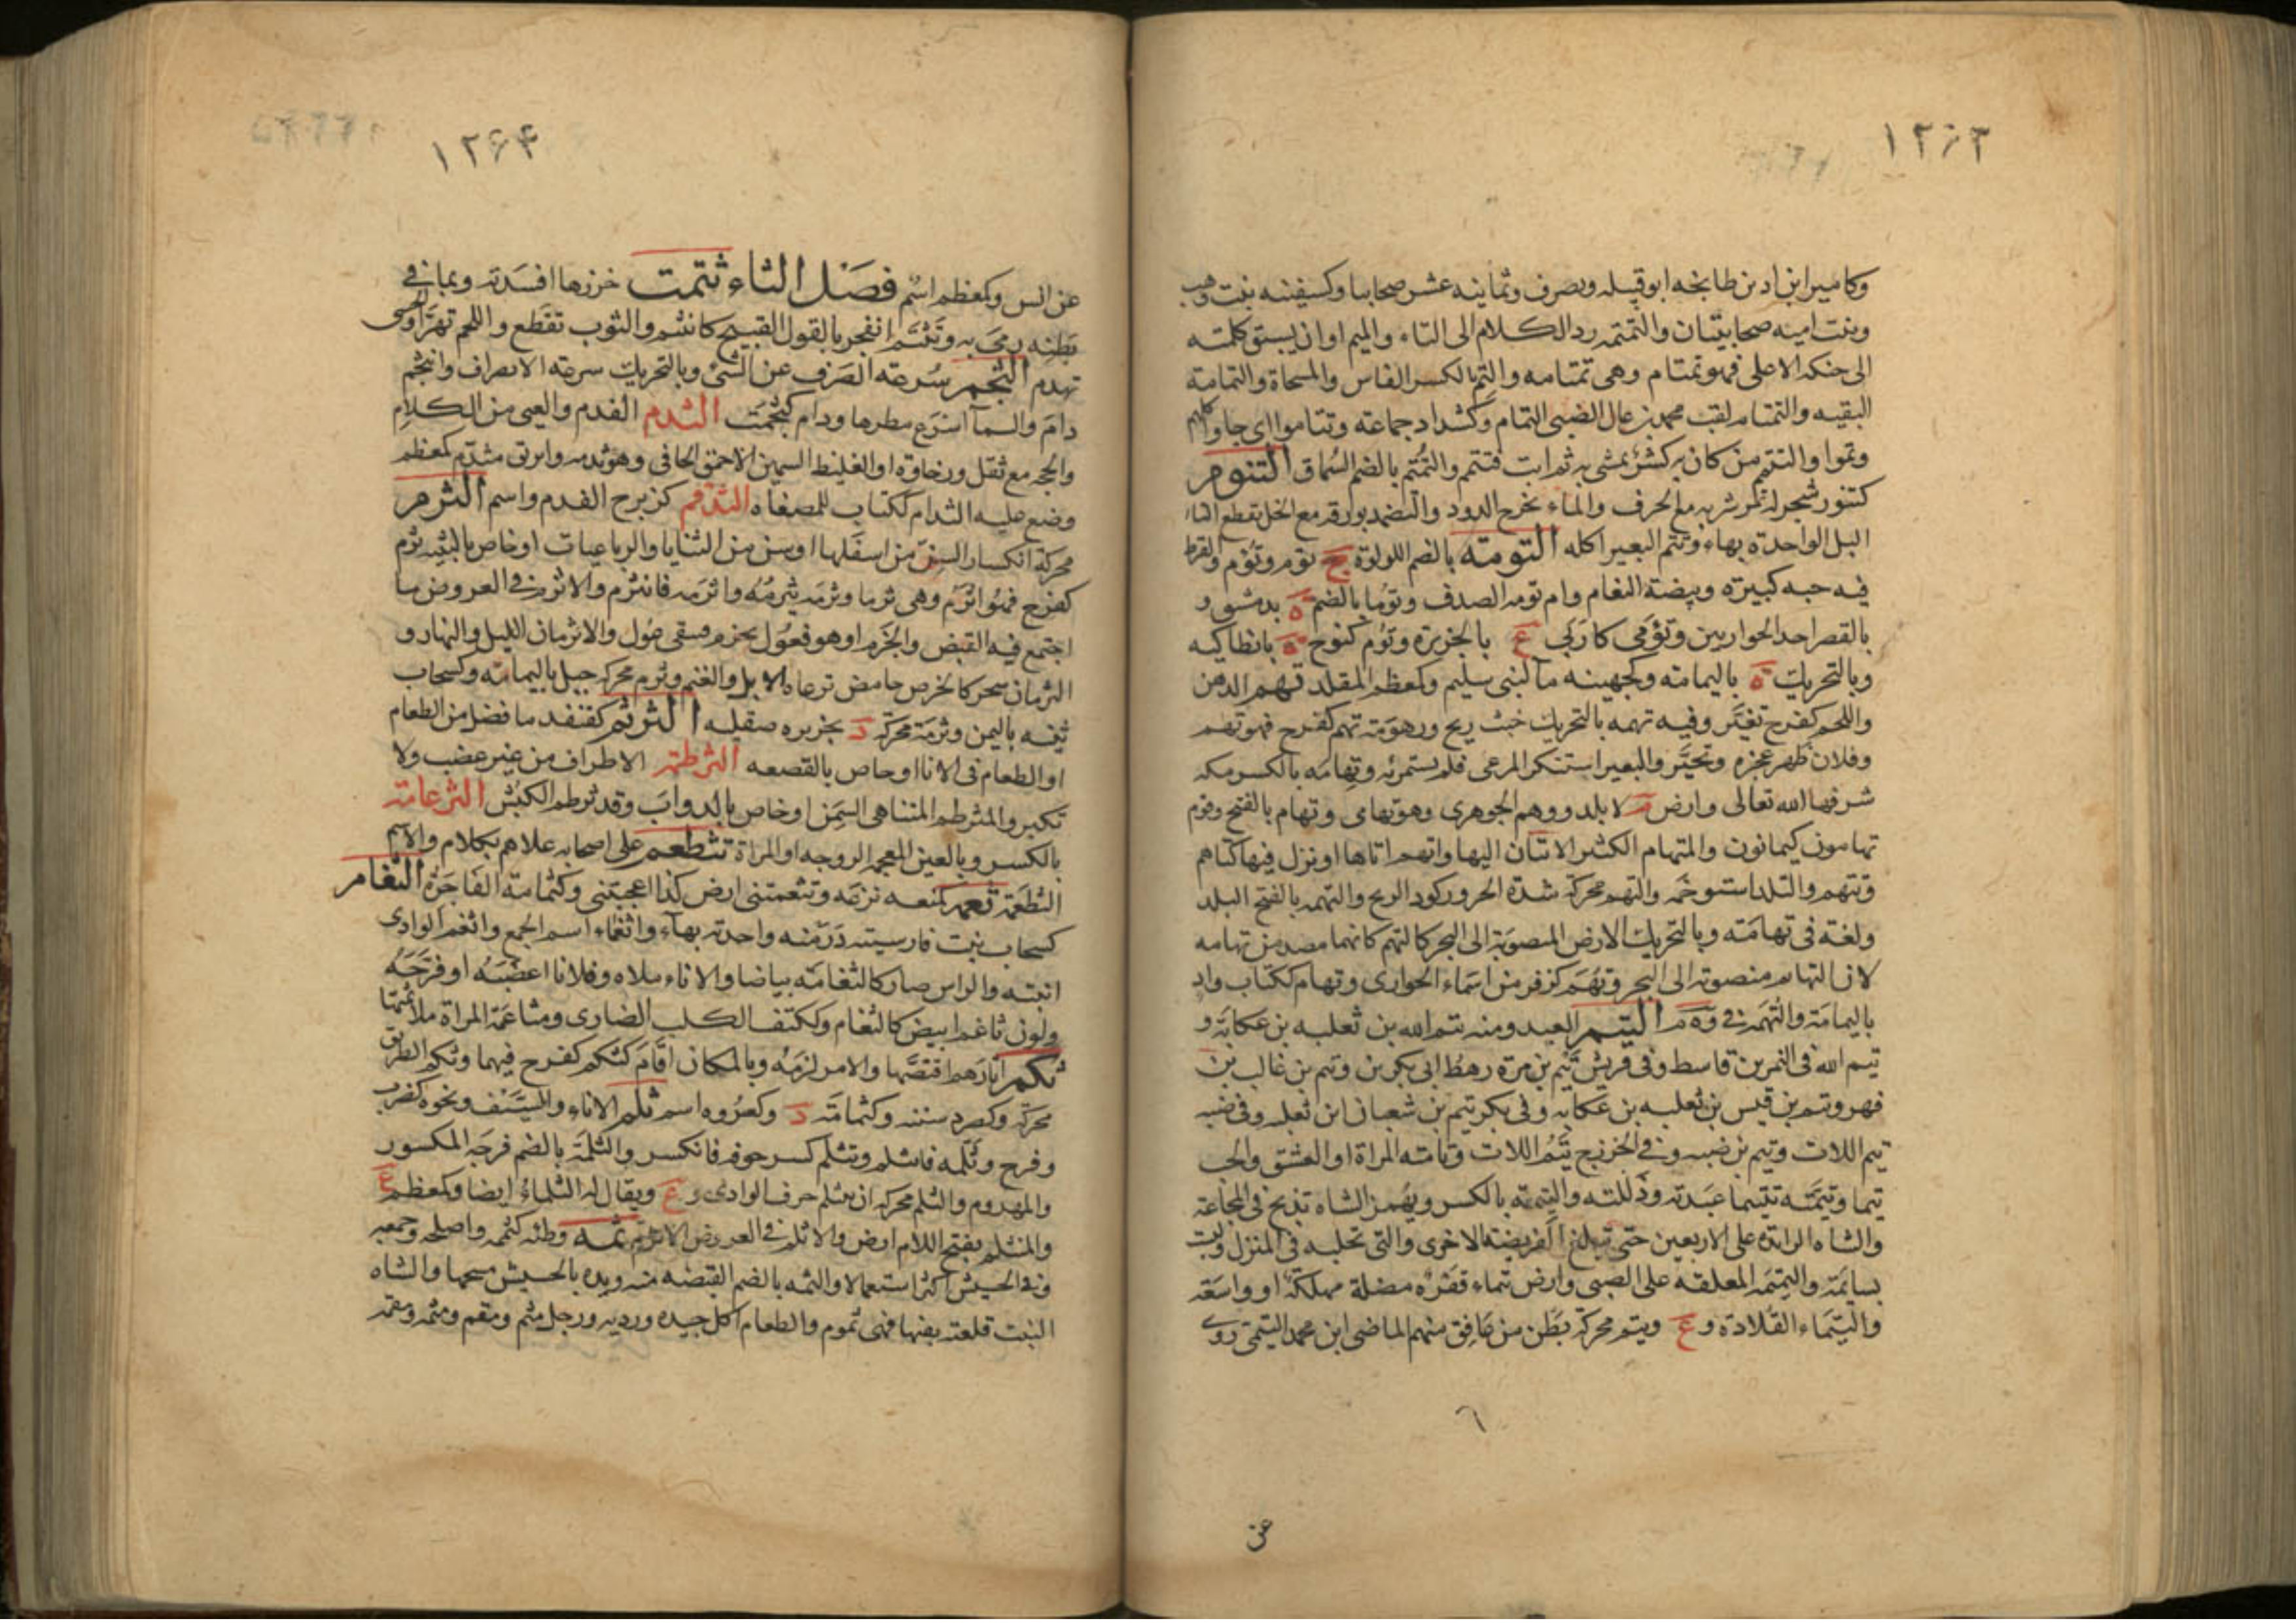 ١٢٦٣
وكامير ابن اد بن طابخه ابو قبيله ويصرف وثمانيه عشر صحابيا وكسفينه بنت وهب
وبنت اميه صحابيتان والتمتمه رد الكلام الى التاء والميم او ان يسبق كلمته
الى حنكه الاعلى فهو تمتام وهى تمتامه والتم بالكسر الفاس والمسحاة والتمامة
البقيه والتمتام لقب محمد بن غالب الضبى التمام وكشداد جماعة وتتاموا اى جاوا كلهم
وتموا والتتم من كان به كسر يمشى به ثم ابت فتتم والتمتم بالضم السماق التنوم
كتنور شجر له ثمر شربه مع الحرف والماء يخرج الدود والتضمد بورقه مع الخل يقطع الثا
ليل الواحدة بهاء وتنم البعير اكله التومة بالضم اللولوة ج توم وتؤم والقرط
فيه حبه كبيره وبيضة النعام وام تومه الصدف وتوما بالضم ة بدمشق و
بالقصر احد الحواريين وتؤمى كاربى ع بالجزيره وتؤم كنوح ة بانطاكيه
وبالتحريك ة باليمامة وكجهينه ما لبنى سليم وكمعظم المقلد تهم الدهن
واللحم كفرح تغير وفيه تهمه بالتحريك خبث ريح ورهومة تهم كفرح فهو تهم
وفلان ظهر عجزه وتحير والبعير استنكر المرعى فلم يستمرئه وتهامه بالكسر مكه
شرفها الله تعالى وارض م لا بلد ووهم الجوهرى وهو تهامى وتهام بالفتح وقوم
تهامون كيمانون والمتهام الكثير الاتيان اليها واتهم اتاها او نزل فيها كتاهم
وتتهم والبلد استوخمه والتهم محركة شدة الحر وركود الريح والتهمه بالفتح البلد
ولغة فى تهامه وبالتحريك الارض المصوبة الى البحر كالتهم كانهما مصدر من تهامه
لان التهائم منصوبه الى البحر وتهم كزفر من اسماء الجوارى وتهام ككتاب واد
باليمامة والتهمة فى وهم التيم العبد ومنه تيم الله بن ثعلبه بن عكابة و
تيم الله فى النمر بن قاسط وفى قريش تيم بن مرة رهط ابى بكر وتيم بن غالب بن
فهر وتيم بن قيس بن ثعلبه بن عكابه وفى بكر تيم بن شعبان ابن ثعلبه وفى ضبه
تيم اللات وتيم بن ضبه وفى الخزرج تيم اللات وتامته المراة او العشق والحب
تيما وتيمته تتييما عبدته وذللته والتيمة بالكسر ويهمز الشاه تذبح فى المجاعة
والشاه الزائده على الاربعين حتى تبلغ الفريضة الاخرى والتى تحلب فى المنزل وليست
بسائمة والتيمة المعلقه على الصبى وارض تيماء قفره مضلة مهلكة او واسعة
والتيماء الفلاة و ع ويتم محركة بطن من غافق منهم الماضى ابن محمد التيمى روى
٦
عن
١٢٦٤
عن انس وكمعظم اسم فصل الثاء ثتمت خرزها افسدته وبما فى
بطنه رمى به وتثتم انفجر بالقول القبيح كانثتم والثوب تقطع واللحم تهرا والحسى
تهدم الثجم سرعة الصرف عن الشئ وبالتحريك سرعة الانصراف واثجم
دام والسماء اسرع مطرها ودام كثجمت الثدم الفدم والعيى من الكلام
والحجه مع ثقل ورخاوة او الغليظ السمين الاحمق الجافى وهو ثدمه وابريق مثدم كمعظم
وضع عليه الثدام ككتاب للمصفاه الثذقم كزبرج الفدم واسم الثرم
محركة انكسار السن من اسفلها او سن من الثنايا والرباعيات او خاص بالثنيه ثرم
كفرح فهو اثرم وهى ثرما وثرمه يثرمه واثرمه فانثرم والاثرم فى العروض ما
اجتمع فيه القبض والخرم او هو فعول يخرم فيبقى عول والاثرمان الليل والنهار و
الثرمان شجر كالحرض حامض ترعاه الابل والغنم وثرم محركة جبل باليمامة وكسحاب
ثنيه باليمن وثرمة محركة د بجزيره صقليه الثرتم كقنفد ما فضل من الطعام
او الطعام فى الانا او خاص بالقصعه الثرطمة الاطراف من غير غضب ولا
تكبر والمثرطم المتناهى السمن او خاص بالدواب وقد ثرطم الكبش الثرعامة
بالكسر وبالعين المعجمه الزوجه او المراة تثطعم على اصحابه علاهم بكلام والاسم
الثطعمة ثعمه كمنعه نزعه وتثعمتنى ارض كذا اعجبتنى وكثمامة الفاجرة الثغام
كسحاب نبت فارسيته درمنه واحدته بهاء واثغماء اسم الجمع واثغم الوادى
انبته والراس صار كالثغامه بياضا والاناء ملاه وفلانا اغضبه او فرحه
ولون ثاغم ابيض كالثغام وككتف الكلب الضارى ومثاغمة المراة ملاثمتها
ثكم اثارهم اقتصها والامر لزمه وبالمكان اقام كثكم كفرح فيهما وثكم الطريق
محركة وكصرد سننه وكثمامة د وكعروه اسم ثلم الاناء والسيف ونحوه كضرب
وفرح وثلمه فانثلم وتثلم كسر حرفه فانكسر والثلمة بالضم فرجة المكسور
والمهدوم والثلم محركة ان ينثلم حرف الوادى و ع ويقال له الثلماء ايضا وكمعظم ع
والمنثلم بفتح اللام ارض والاثلم فى العروض الاثرم ثمه وطئه كثممه واصلحه وجمعه
وفى الحشيش اكثر استعمالا والثمه بالضم القبضه منه ويده بالحشيش مسحها والشاه
النبت قلعته بفيها فهى ثموم والطعام اكل جيده ورديه ورجل مثم ومقم ومثمه ومقمه